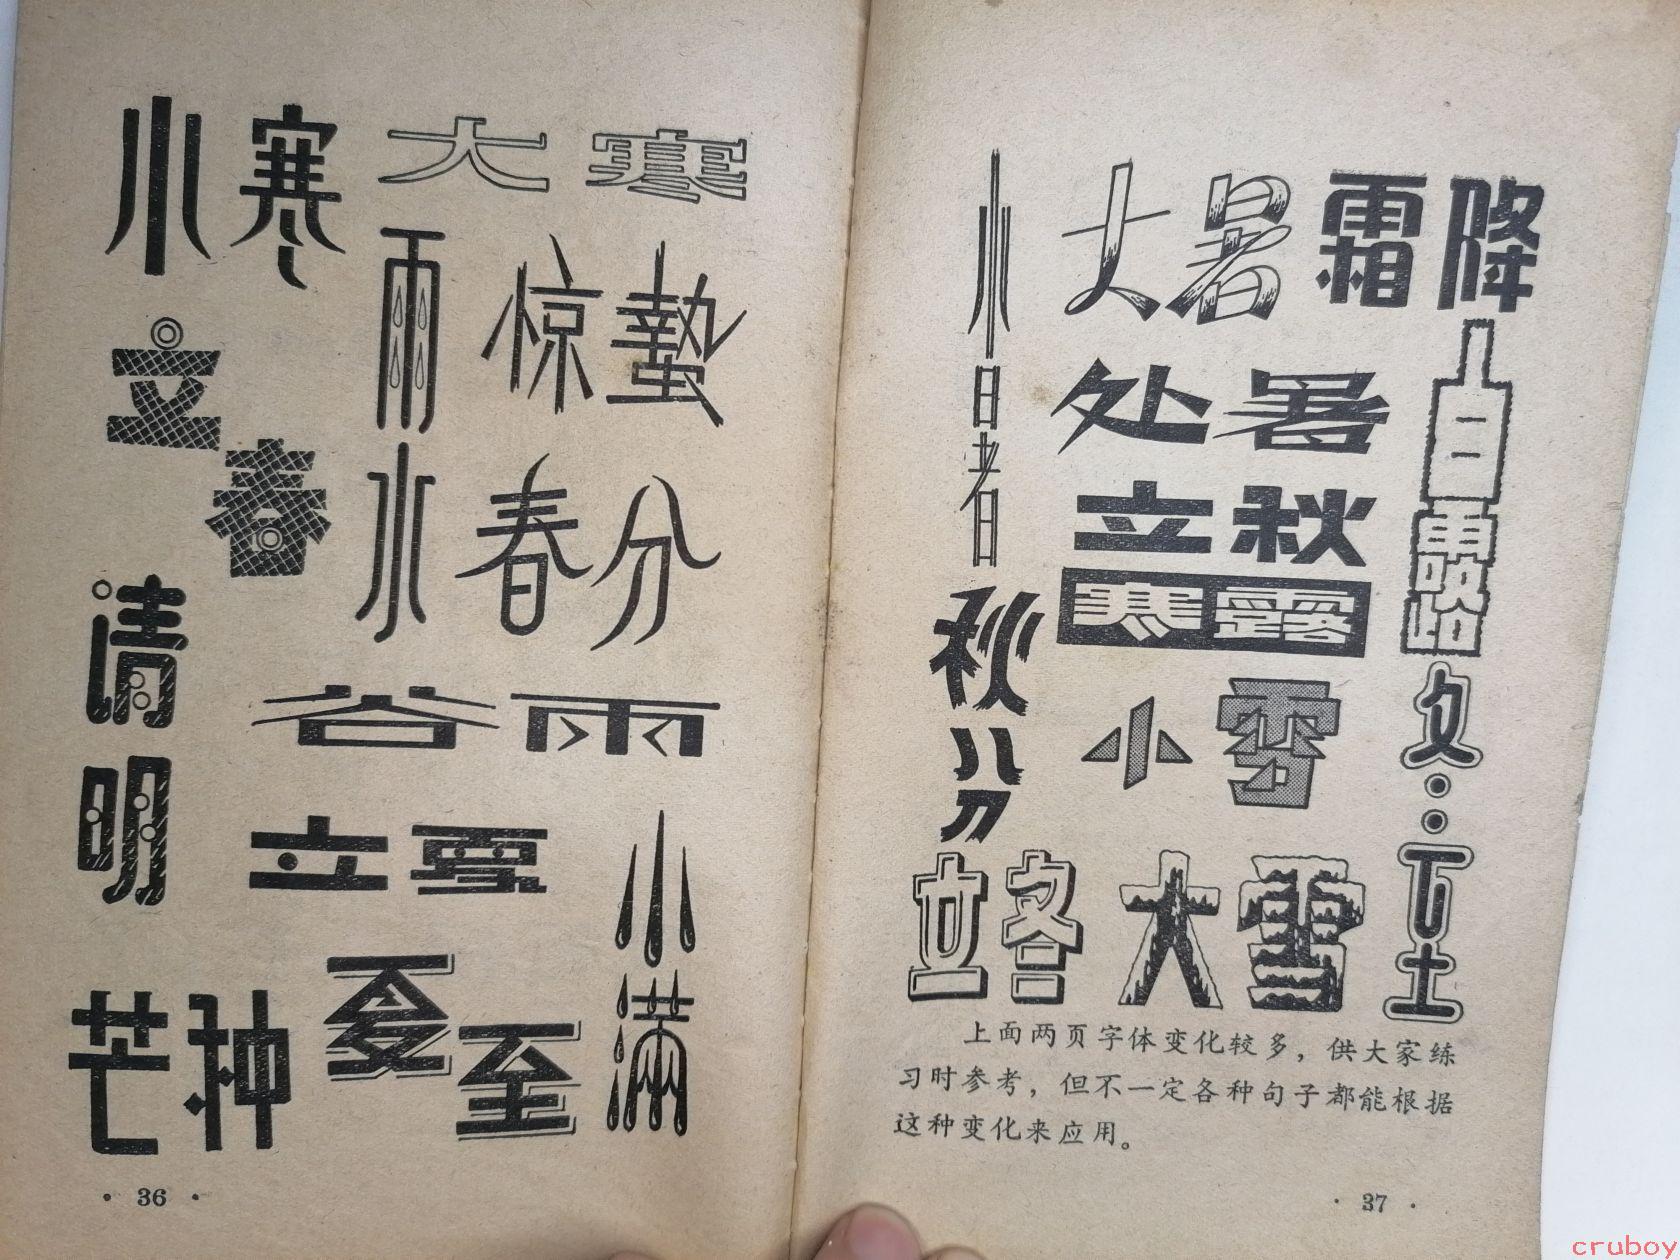 小寒
大寒
立春
雨水
惊蛰
春分
清明
谷雨
立夏
小满
芒种
夏至
· 36 ·
小暑
大暑
霜降
处暑
白露
立秋
寒露
秋分
小雪
冬至
立冬
大雪
上面两页字体变化较多，供大家练
习时参考，但不一定各种句子都能根据
这种变化来应用。
· 37 ·
cruboy